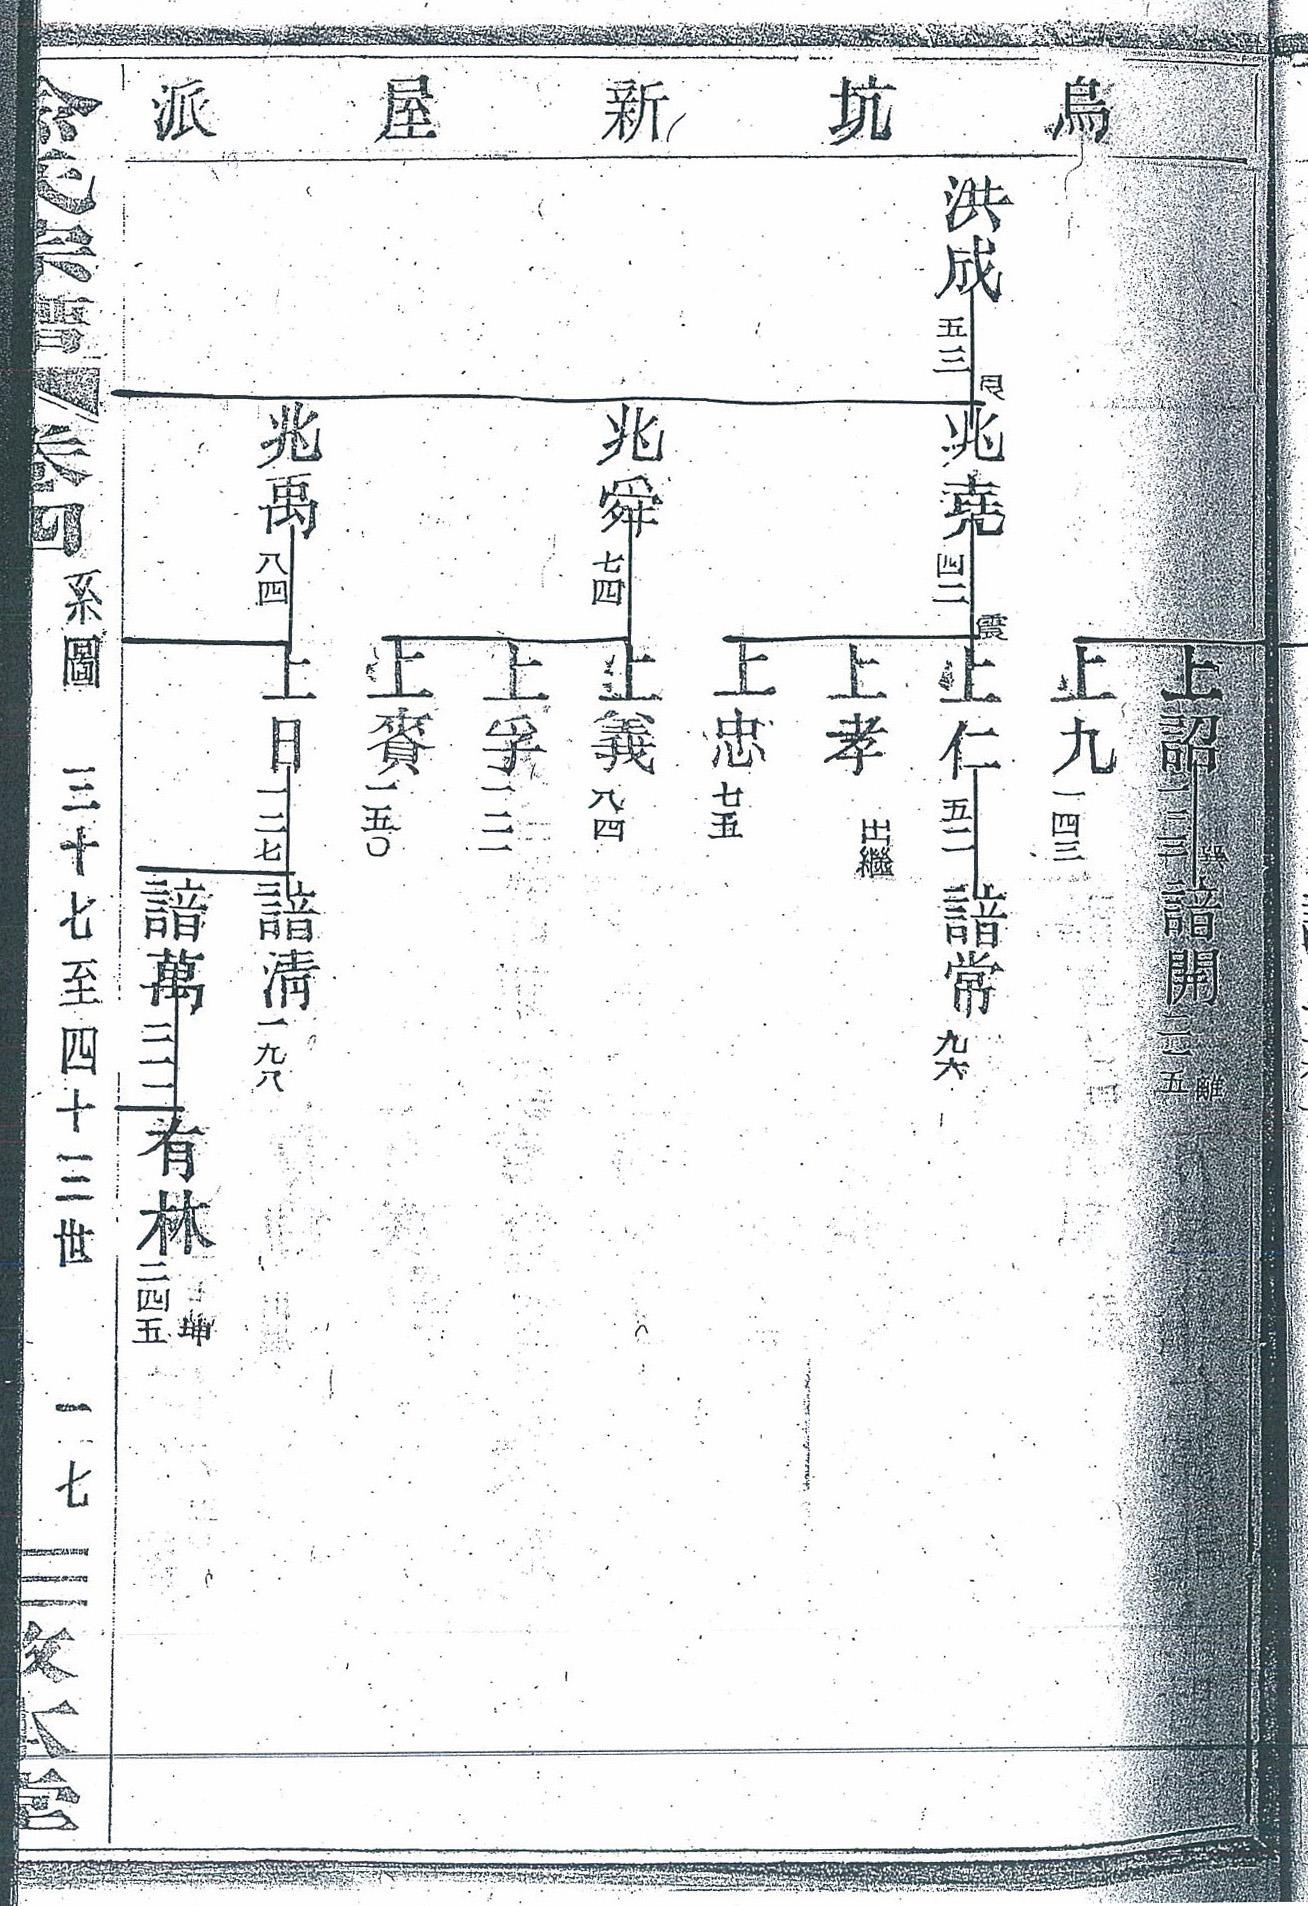 烏坑新屋派
上詔 一三三 巽
諳開 二七五 離
上九 一四三
洪成 五三 艮
兆堯 四二 震
上仁 五二
諳常 九六
上孝 出繼
上忠 七五
兆舜 七四
上義 八四
上孚 一二二
上賚 一五〇
兆禹 八四
上日 一二七
諳清 一九八
諳萬 二一二
有林 二四五 坤
余氏宗譜 卷四 系圖 三十七至四十三世 二七